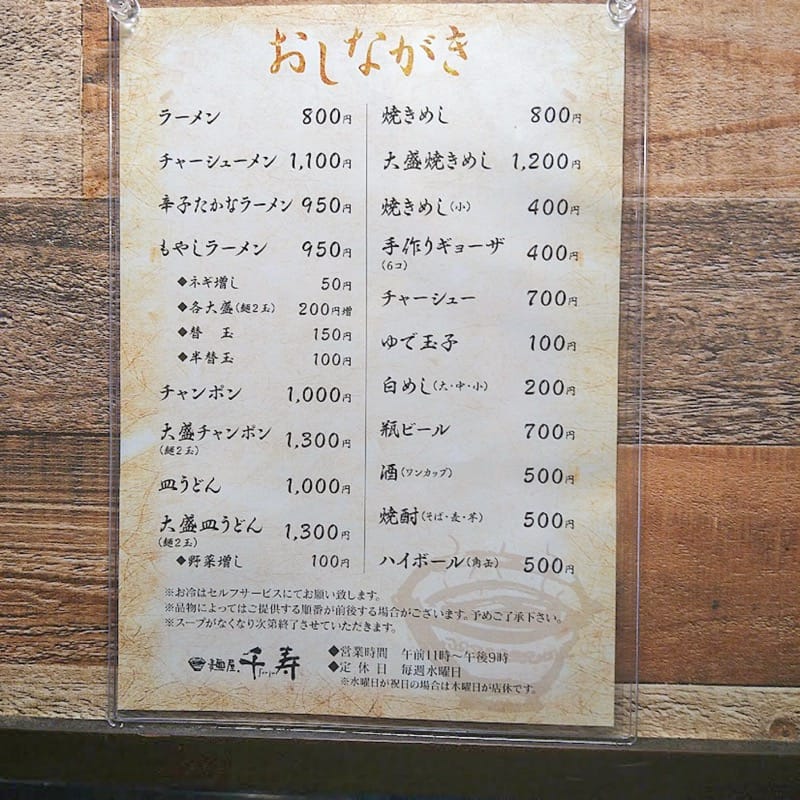 おしながき
ラーメン 800円
チャーシューメン 1,100円
辛子たかなラーメン 950円
もやしラーメン 950円
◆ネギ増し 50円
◆各大盛(麺2玉) 200円増
◆替 玉 150円
◆半替玉 100円
チャンポン 1,000円
大盛チャンポン 1,300円
(麺2玉)
皿うどん 1,000円
大盛皿うどん 1,300円
(麺2玉)
◆野菜増し 100円
焼きめし 800円
大盛焼きめし 1,200円
焼きめし(小) 400円
手作りギョーザ 400円
(6コ)
チャーシュー 700円
ゆで玉子 100円
白めし(大・中・小) 200円
瓶ビール 700円
酒(ワンカップ) 500円
焼酎(そば・麦・芋) 500円
ハイボール(角缶) 500円
※お冷はセルフサービスにてお願い致します。
※品物によってはご提供する順番が前後する場合がございます。予めご了承下さい。
※スープがなくなり次第終了させていただきます。
麺屋 千寿
◆営業時間 午前11時〜午後9時
◆定休日 毎週水曜日
※水曜日が祝日の場合は木曜日が店休です。